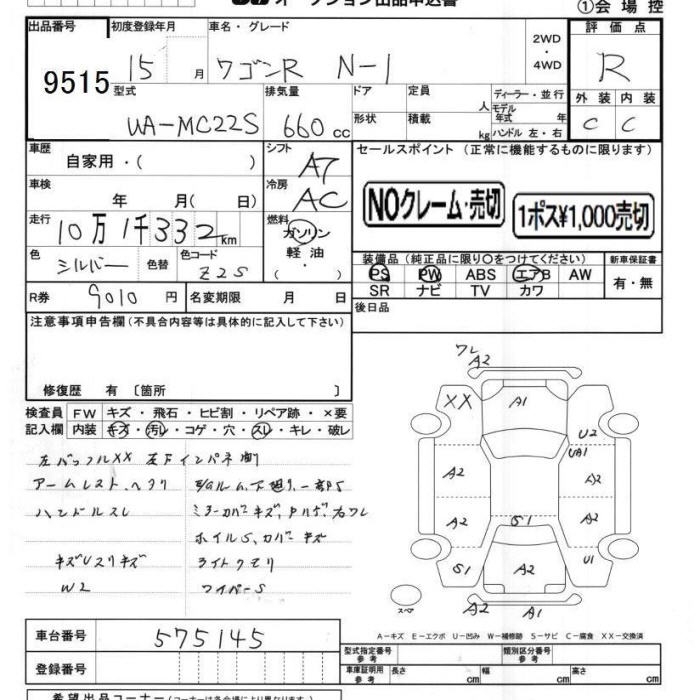 オークション出品申込書
①会場控
出品番号
初度登録年月
車名・グレード
2WD
・
4WD
評価点
9515
15 月
ワゴンR N-1
R
型式
排気量
ドア
定員
人
ディーラー・並行
モデル
年式 年
外装
内装
UA-MC22S
660 cc
形状
積載
kg
ハンドル 左・右
C
C
車歴
自家用・( )
シフト
A7
セールスポイント (正常に機能するものに限ります)
車検
年 月( 日)
冷房
AC
NOクレーム・売切
1ポス¥1,000売切
走行
10万1千332 km
燃料
ガソリン
軽油
・
色
シルバー
色替
色コード
Z2S
装備品 (純正品に限り〇をつけてください)
新車保証書
PS PW ABS エアB AW
有・無
SR ナビ TV カワ
R券
9010 円
名変期限
月 日
後日品
注意事項申告欄 (不具合内容等は具体的に記入して下さい)
修復歴 有 〔箇所 〕
検査員
記入欄
FW
キズ・飛石・ヒビ割・リペア跡・×要
内装
キズ・汚レ・コゲ・穴・スレ・キレ・破レ
左バッフルXX 左下インパネ
アームレスト、ヘタリ
下廻り、一部S
ハンドルスレ
ミラーカバーキズ
右ワレ
ホイルS、カバーキズ
キズUスリキズ
ライトクモリ
W2
ワイパーS
ワレ
A2
XX
A1
U2
UA1
A2
A2
A2
S1
A2
S1
A2
U1
A2
A1
スペア
A-キズ E-エクボ U-凹み W-補修跡 S-サビ C-腐食 XX-交換済
車台番号
575145
型式指定番号
参考
類別区分番号
参考
登録番号
車庫証明用
参考
長さ cm
幅 cm
高さ cm
希望出品コーナー (コーナーは各会場により異なります)